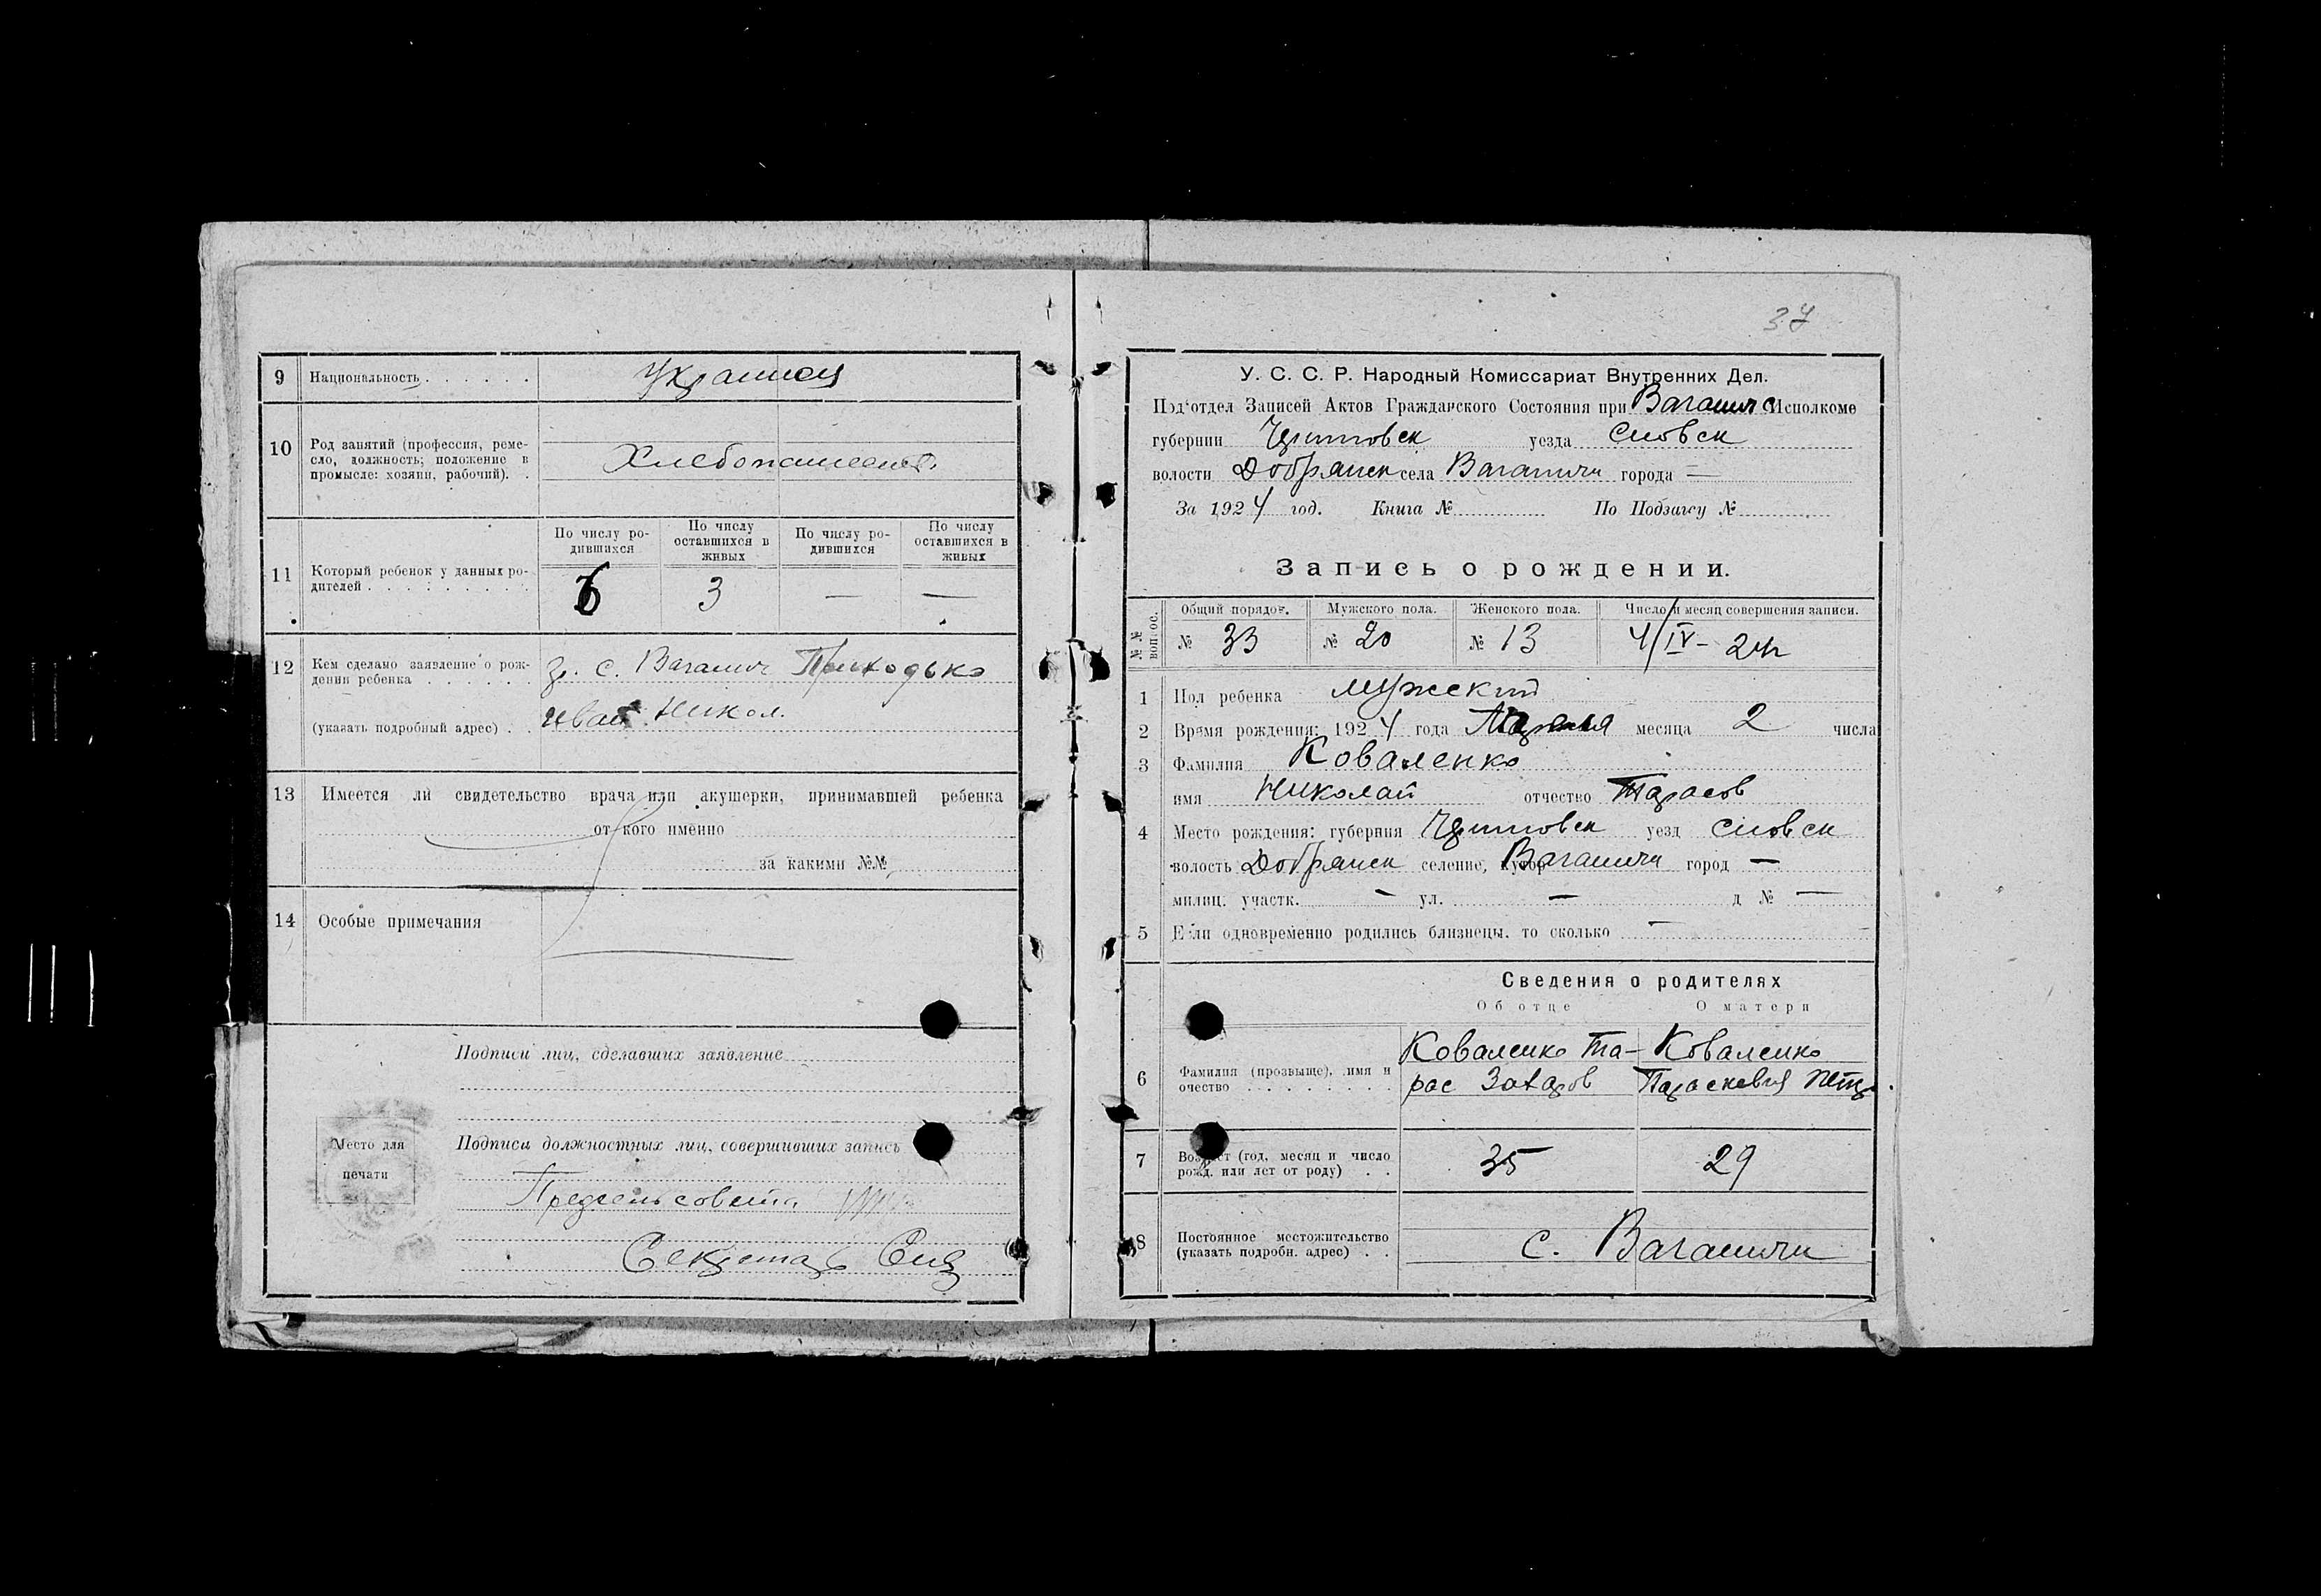 9 Национальность . . . . . . Украинец
10 Род занятий (профессия, реме-
сло, должность; положение в
промысле: хозяин, рабочий). .
Хлебопашество
11 Который ребенок у данных ро-
дителей . . . . . . . . . .
По числу ро-
дившихся
По числу
оставшихся в
живых
По числу ро-
дившихся
По числу
оставшихся в
живых
6 3 — —
12 Кем сделано заявление о рож-
дении ребенка . . . . . . гр. с. Ваганич Приходько
(указать подробный адрес) . . Иван Никол.
13 Имеется ли свидетельство врача или акушерки, принимавшей ребенка
от кого именно
за какими №№
14 Особые примечания
Подписи лиц, сделавших заявление
Место для
печати
Подписи должностных лиц, совершивших запись
Предсельсовета
Секретарь
37
У. С. С. Р. Народный Комиссариат Внутренних Дел.
Под'отдел Записей Актов Гражданского Состояния при Ваганич С Исполкоме
губернии Чернитовск уезда Сновск
волости Добрянск села Ваганичи города —
За 1924 год. Книга № По Подзагсу №
Запись о рождении.
№№ вопрос.
Общий порядок. Мужского пола. Женского пола. Число и месяц совершения записи.
№ 33 № 20 № 13 4/IV - 24
1 Пол ребенка мужский
2 Время рождения: 1924 года месяца 2 числа
3 Фамилия Коваленко
имя Николай отчество Тарасов
4 Место рождения: губерния Чернитовск уезд Сновск
волость Добрянск селение, хутор Ваганичи город —
милиц. участк. — ул. — д № —
5 Если одновременно родились близнецы. то сколько —
Сведения о родителях
Об отце О матери
6 Фамилия (прозвыще), имя и
очество . . . . . . . . .
Коваленко Та-
рас Захаров
Коваленко
Параскевия Петр.
7 Возраст (год, месяц и число
рожд. или лет от роду) . .
35 29
8 Постоянное местожительство
(указать подробн. адрес) . .
с. Ваганичи